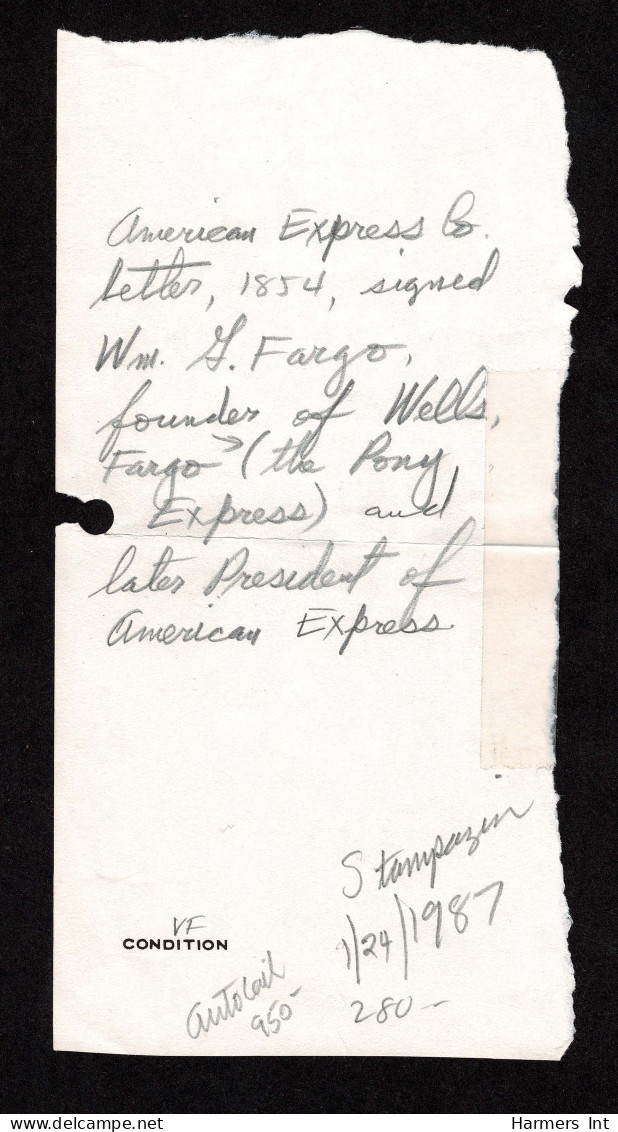 American Express Co.
letter, 1854, signed
Wm. G. Fargo,
founder of Wells,
Fargo (the Pony
Express) and
later President of
American Express
Stampazine
1/24/1987
280-
VF
CONDITION
950-
www.delcampe.net
Harmers Int